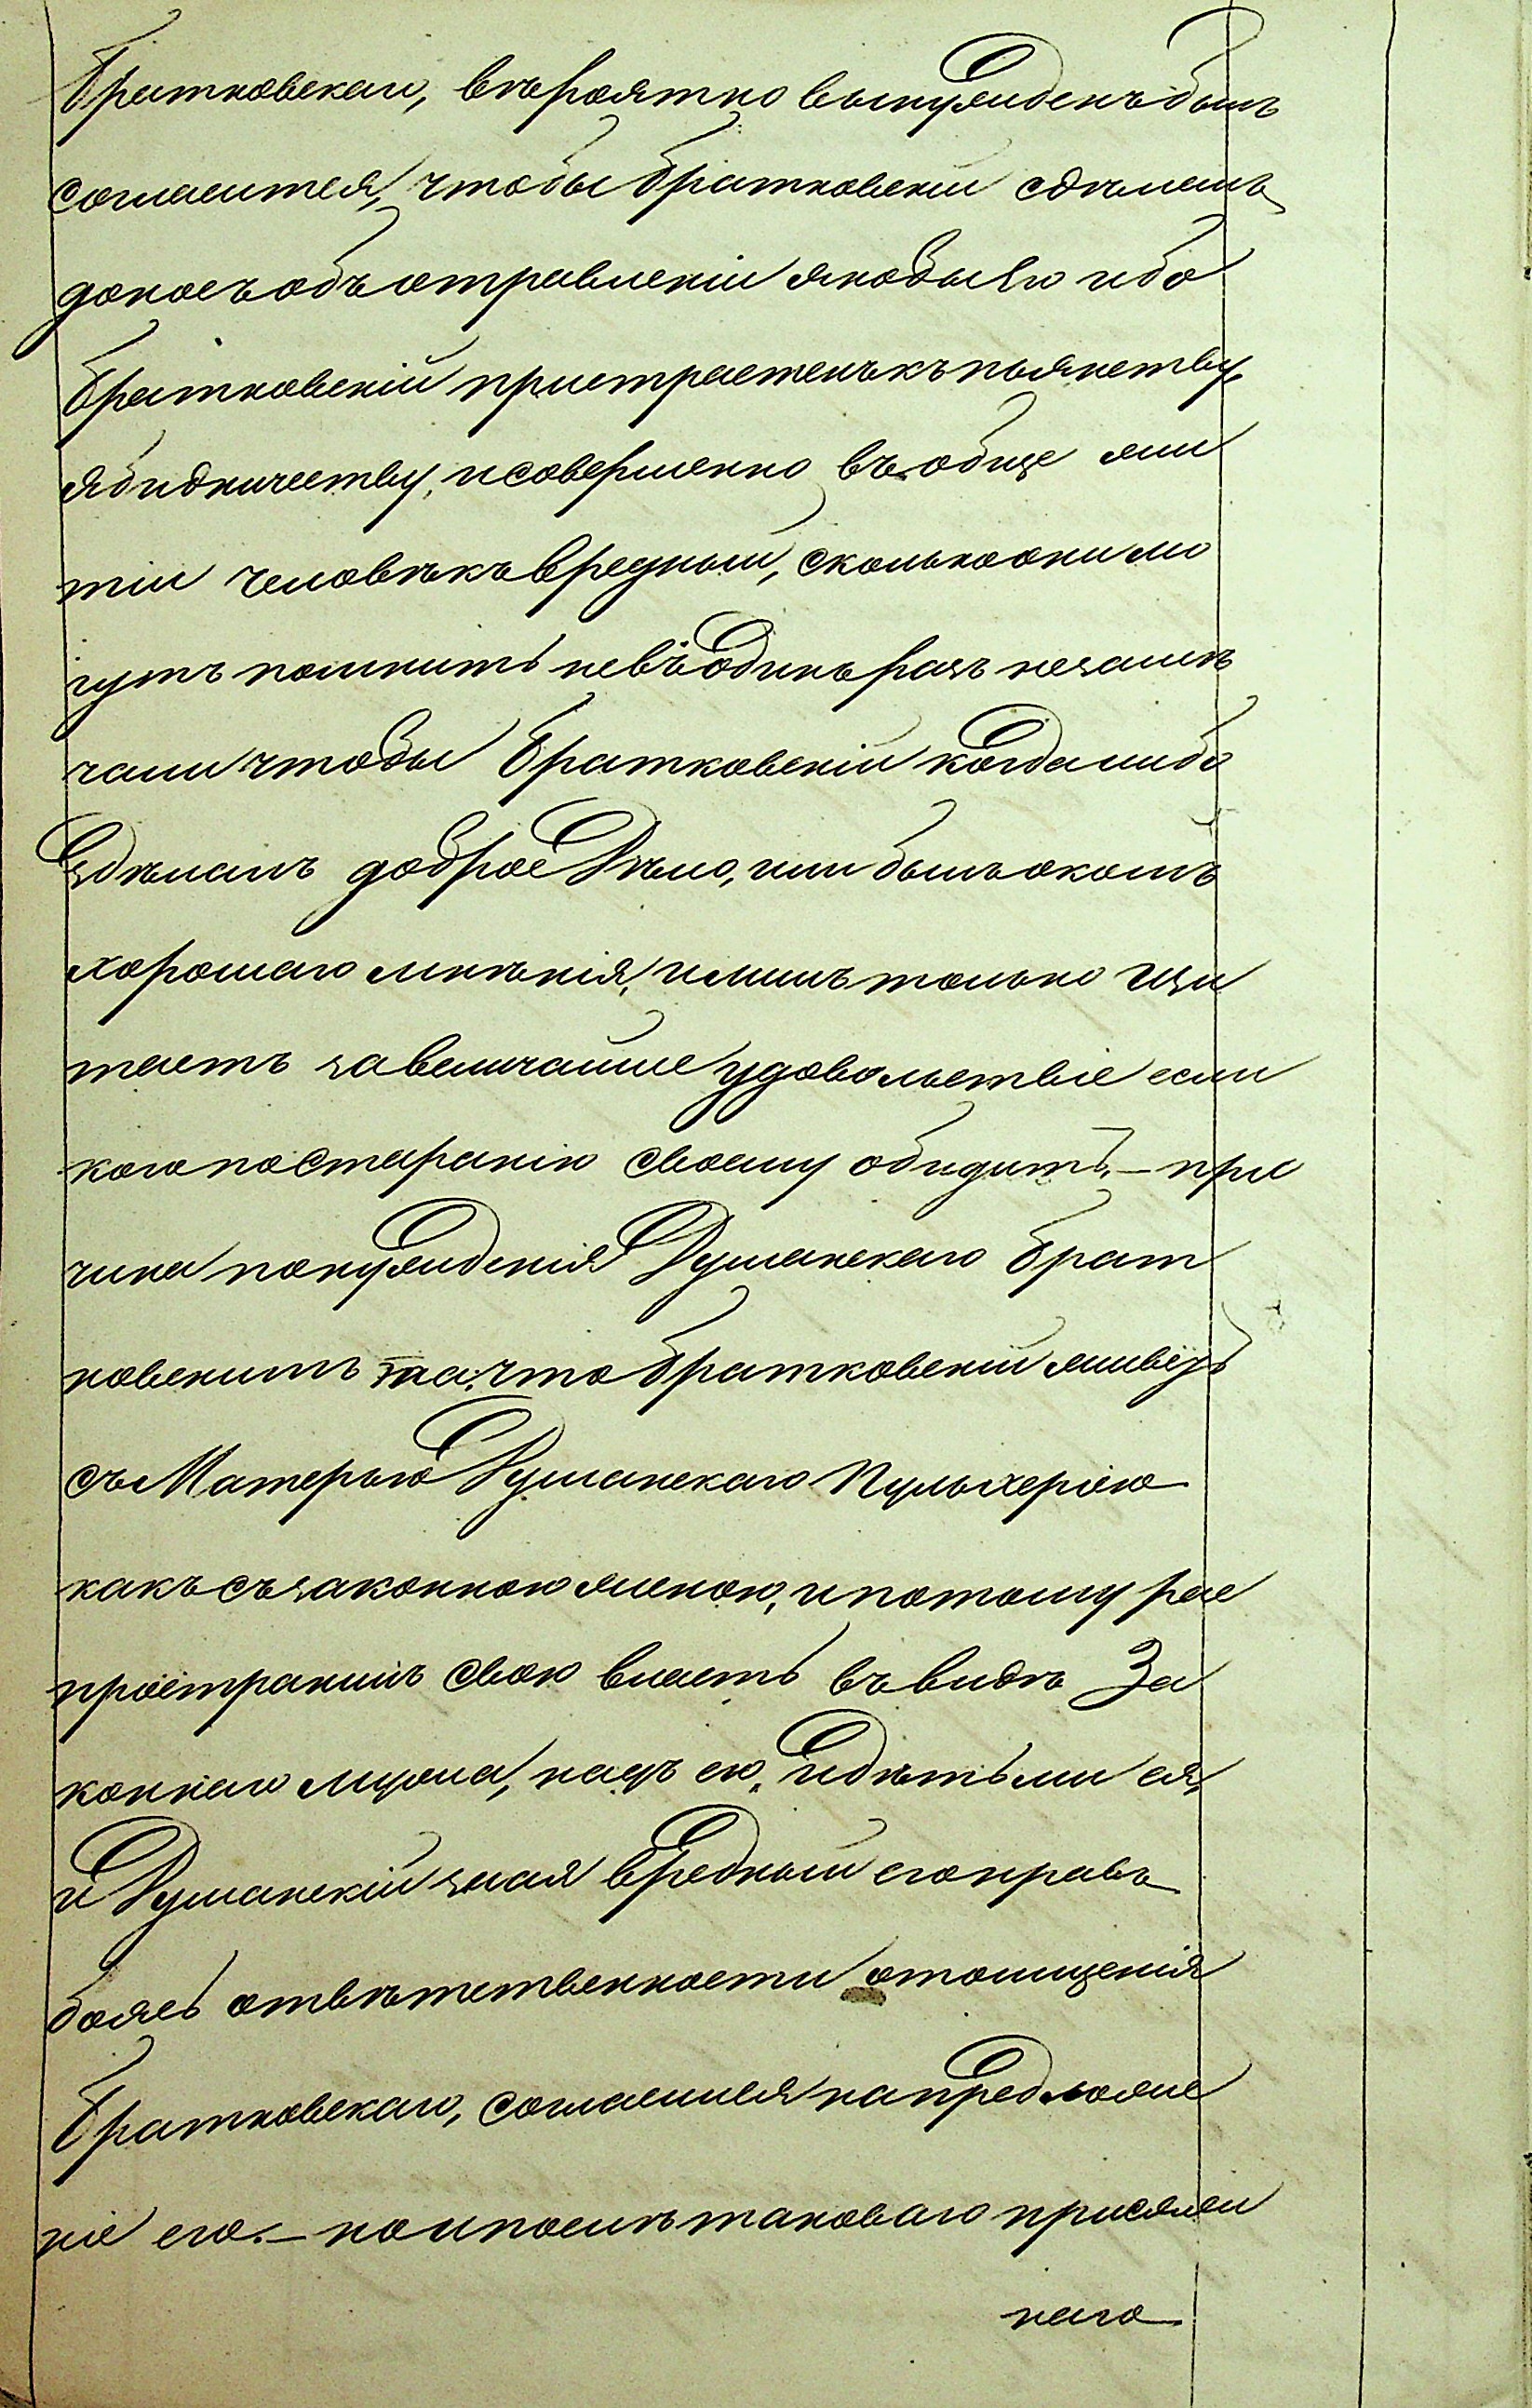 Братковскаго, вѣроятно вынужденъ былъ
согласится, чтобы Братковскій сдѣлалъ
доносъ объ отравленіи якобы Его ибо
Братковскій пристрастенъ къ пьянству
ябидничеству, и совершенно въ обще жи
тіи человѣкъ вредный, сколько они мо
гутъ помнить не въ одинъ разъ не замѣ
чали чтобы Братковскій когда либо
Здѣлалъ доброе Дѣло, или былъ о комъ
хорошаго мнѣнія, и лишь только щи
таетъ за величайшее удовольствіе если
кого по старанію своему обидитъ, – при
чина понужденія Думанскаго Брат
ковскимъ та, что Братковскій живетъ
съ Матерью Думанскаго Пульхеріею
какъ съ законною женою, и потому рас
пространилъ свою власть въ видѣ За
коннаго мужа, надъ ею, и дѣтьми ея,
и Думанскій зная вредный его нравъ
боясь отвѣтственности отомщенія
Братковскаго, согласился на предложе
ніе его. – но и послѣ таковаго присяж
наго